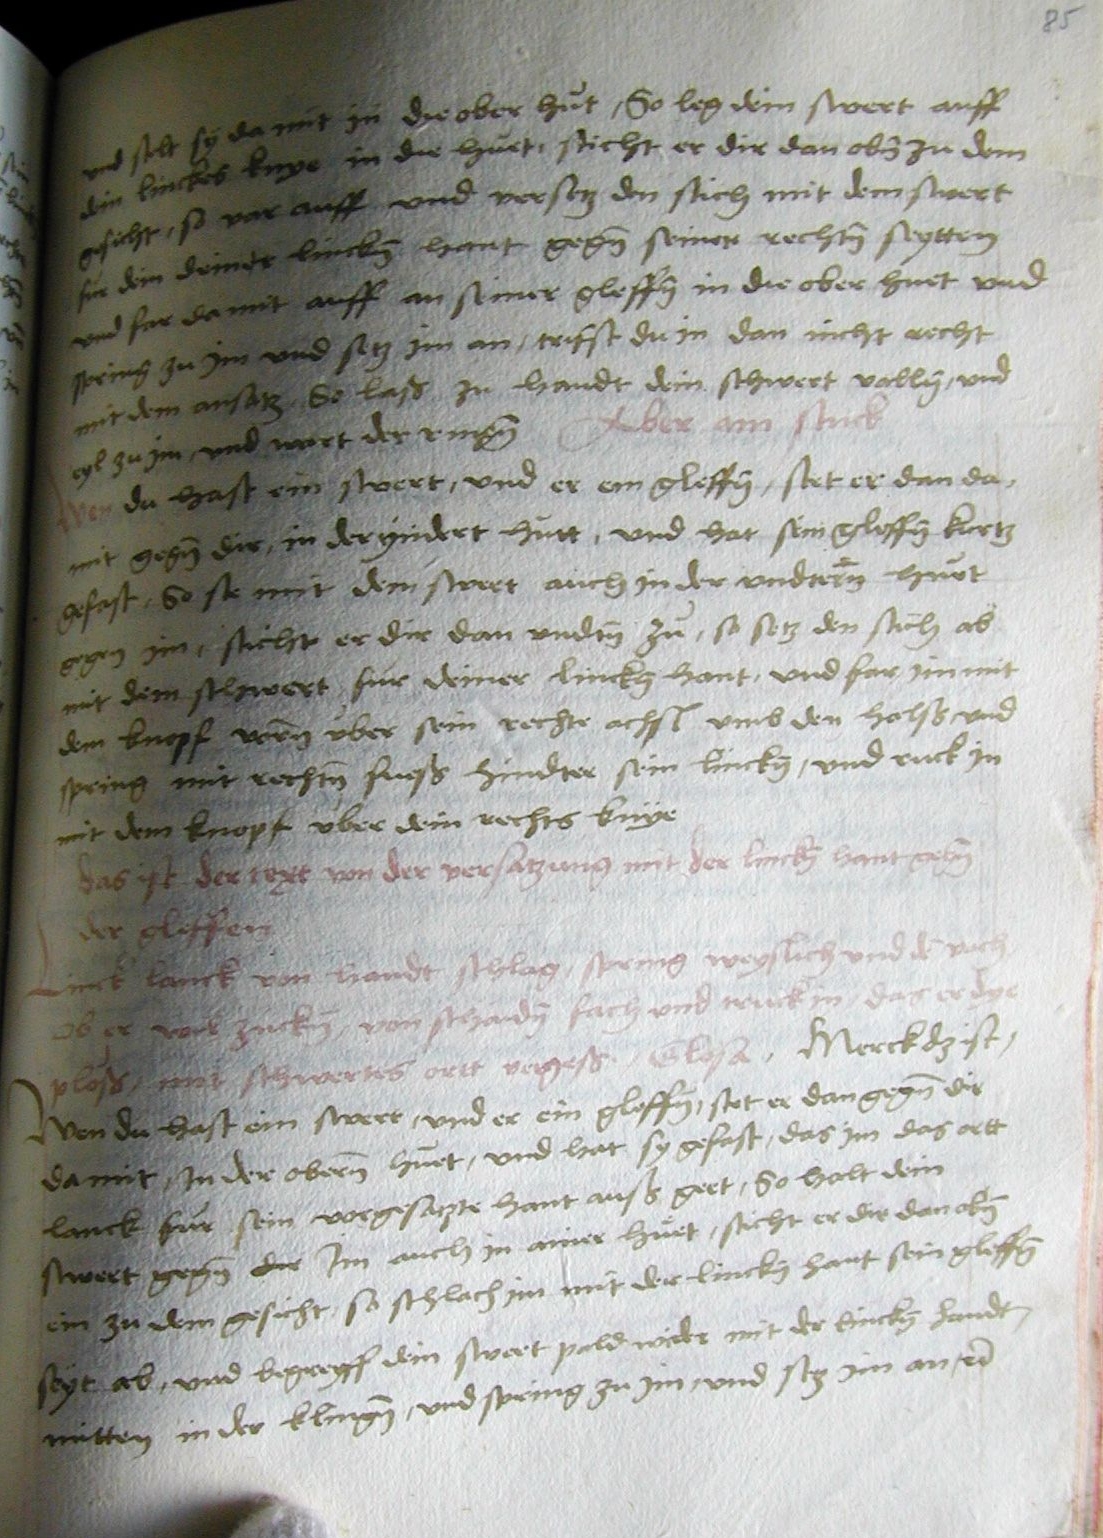 85
und helt sy da mit in die ober hut, So leg dein swert auff
dein linckes knye in die huet, sticht er dir dan obñ zu dem
gesicht, so var auff und versetz den stich mit dem swert
für dein deiner linckñ hant gegñ seiner rechtñ seytten
und far da mit auff an seiner gleffñ in die ober huet und
spring zu im und setz im an, trifst du in dan nicht recht
mit dem ansatz So laß zu handt dein schwert vallñ, und
eyl zu im und wart der ringñ Aber am stuck
Wen du hast ein swert, und er ein gleffñ, stet er dan da,
mit gegñ dir, in der undert hutt, und hat sein gleffñ kurtz
gefast, So ste mit dem swert auch in der undterñ huet
gegen im, sticht er dir dan undtñ zu, so setz den stich ab
mit dem schwert für deiner linckñ hant, und far im mit
dem knopf vorñ über sein rechte achsl umb den halß und
spring mit rechtñ fueß hindter sein linckñ, und ruck in
mit dem knopf über dein rechts knye
das ist der text von der versatzung mit der linckñ hant gegñ
der gleffen
Linck lanck von handt schlag, spring weyslich und dē vach
Ob er wil zuckñ, von schaidñ fach und truck in, das er dye
ploß, mit schwertes ortt vergeß, Glosa, Merck dz ist,
Wen du hast ein swert, und er ein gleffñ, stet er dan gegñ dir
da mit, In der oberñ huet, und hat sy gefast, das im das ortt
lanck für sein vorgesatzte hant auß geet, So halt dein
swert gegñ dir Im auch in ainer huet, sticht er dir dan obñ
ein zu dem gesicht, so schlach im mit der linckñ hant sein gleffñ
seyt ab, und begreyff dein swert pald wider mit der linckñ handt,
mitten in der klingñ, und spring zu im, und setz im an